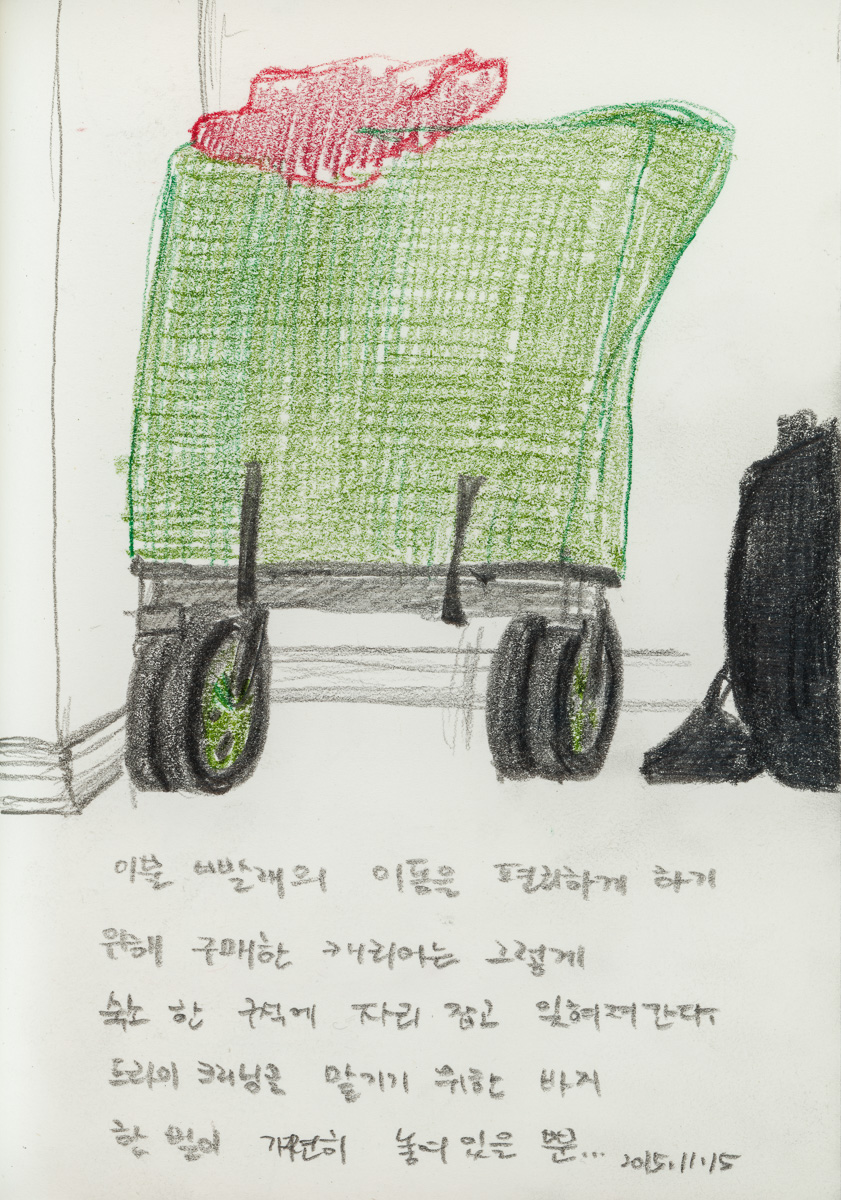 이불 빨래의 이동을 편리하게 하기
위해 구매한 캐리어는 그렇게
숙소 한 구석에 자리 잡고 잊혀져간다.
드라이 크리닝을 맡기기 위한 바지
한 벌이 가련히 놓여있을 뿐... 2015.11.15